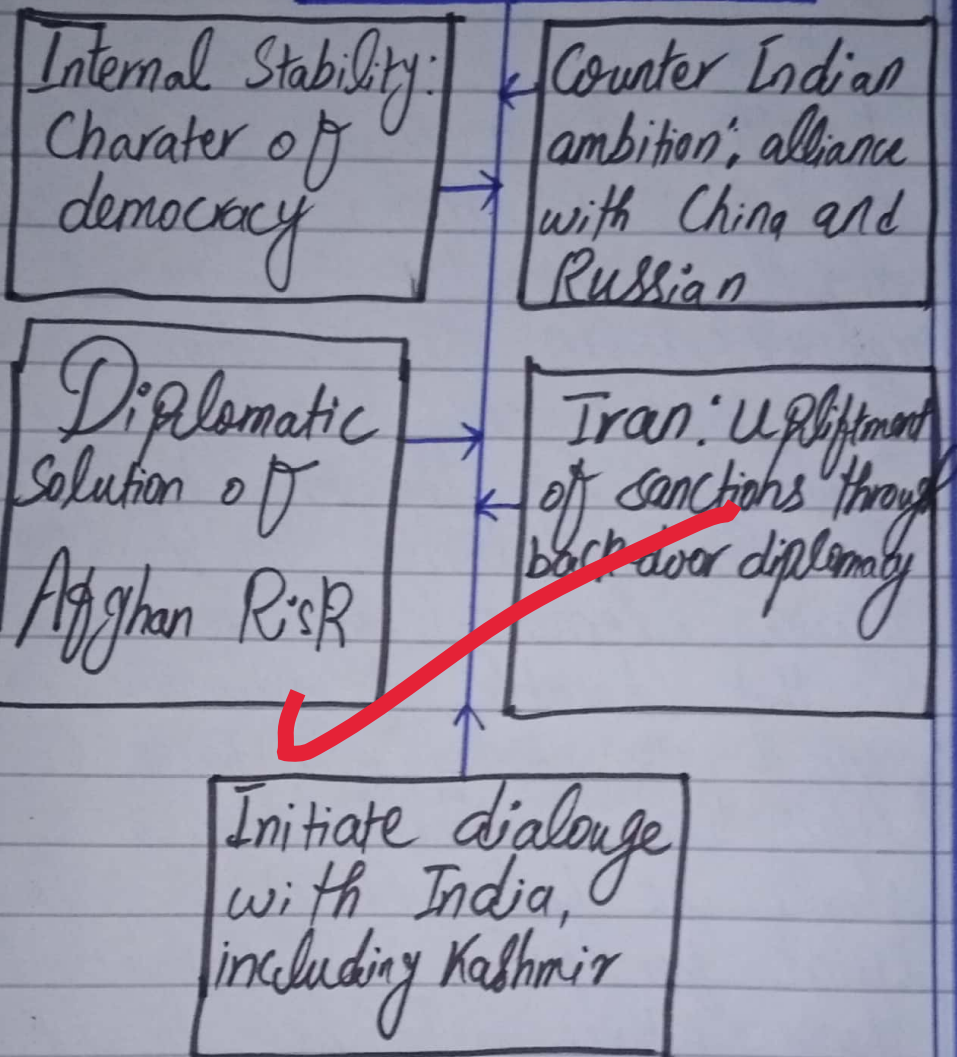 Internal Stability:
Charater of
democracy
Counter Indian
ambition; alliance
with China and
Russian
Diplomatic
Solution of
Afghan Risk
Iran: Upliftment
of sanctions through
back door diplomacy
Initiate dialouge
with India,
including Kashmir